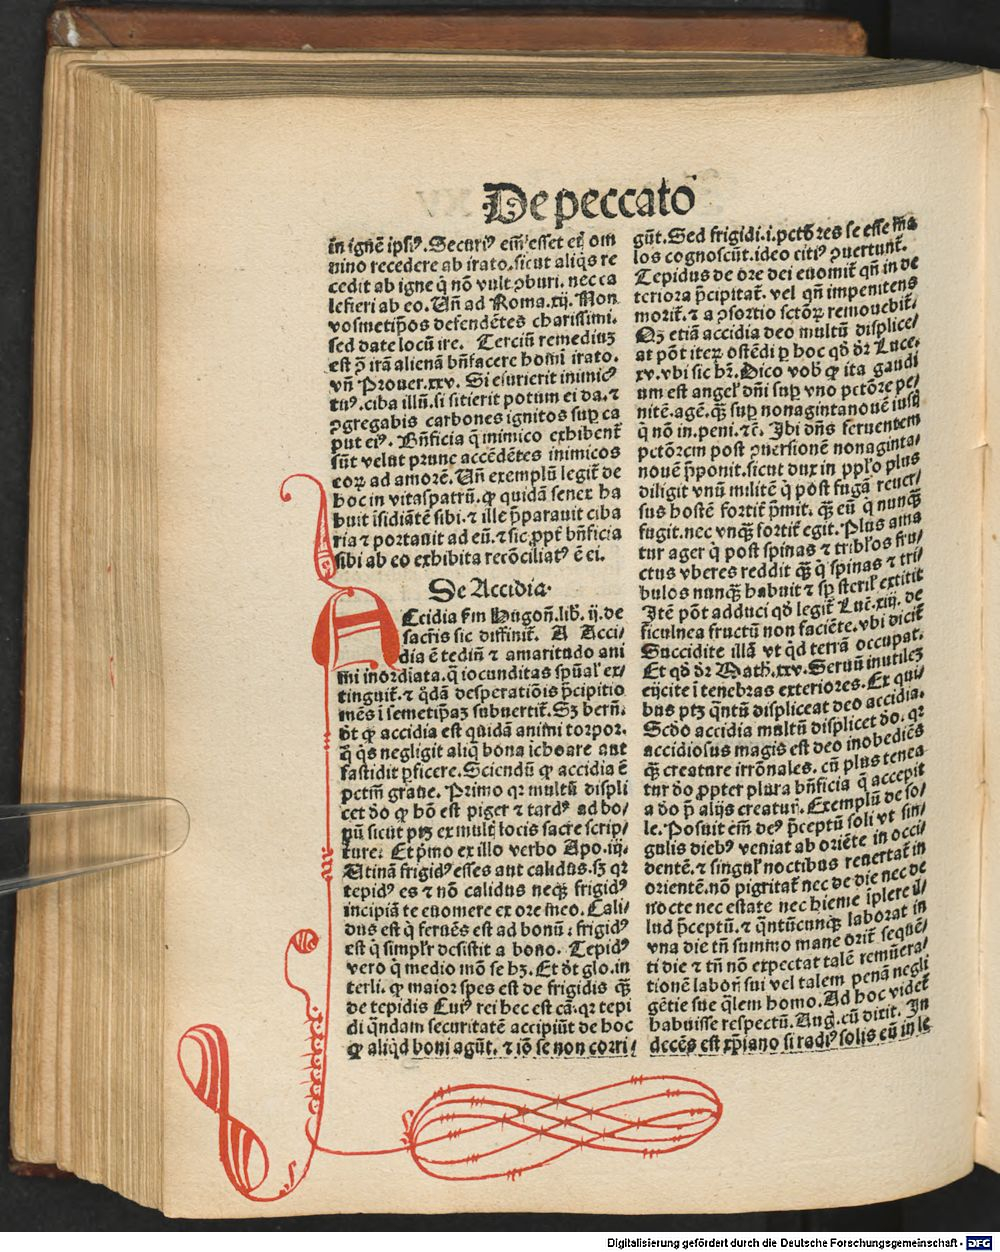 De peccato
in ignē ipsiꝰ. Securiꝰ em̄ esset ei om
nino recedere ab irato. sicut aliq̄s re
cedit ab igne q̄ nō vult ꝯburi. nec ca
lefieri ab eo. Un̄ ad Roma. xij. Non
vosmetip̄os defendētes charissimi.
sed date locū ire. Terciū remediuꝫ
est ꝓ irā alienā bn̄facere hom̄i irato.
vn̄ Prouer. xxv. Si esurierit inimicꝰ
tuꝰ. ciba illū. si sitierit potum ei da. ⁊
ꝯgregabis carbones ignitos suꝑ ca
put eiꝰ. Bn̄ficia q̄ inimico exhibent̄
sūt velut prune accēdētes inimicos
eoꝝ ad amorē. Un̄ exemplū legit̄ de
hoc in vitaspatrū. ꝙ quidā senex ha
buit īsidiātē sibi. ⁊ ille p̄parauit ciba
ria ⁊ portauit ad eū. ⁊ sic ꝓpt̄ bn̄ficia
sibi ab eo exhibita recōciliatꝰ ē ei.
De Accidia.
Accidia ẜm Hugon̄. lib. ij. de
sacr̄is sic diffinit̄. A Acci/
dia ē tediū ⁊ amaritudo ani
mi inordiata. q̄ iocunditas spūal̓ ex/
tinguit̄. ⁊ q̄dā desperatiōis p̄cipitio
mēs ī semetip̄aꝫ subuertit̄. Sꝫ bern̄.
dt̄ ꝙ accidia est quidā animi torpor.
q̄ q̄s negligit aliq̄ bona īchoare aut
fastidit ꝑficere. Sciendū ꝙ accidia ē
pctm̄ graue. Primo qꝛ multū displi
cet do ꝙ hō est piger ⁊ tardꝰ ad bo/
nū sicut ptꝫ ex mult̄ locis sacre scrip/
ture. Et p̄mo ex illo verbo Apo. iij.
Utinā frigidꝰ esses aut calidus. sꝫ qꝛ
tepidꝰ es ⁊ nō calidus neqꝫ frigidꝰ
incipiā te euomere ex ore meo. Cali/
dus est q̄ feruēs est ad bonū: frigidꝰ
est q̄ simpl̓r desistit a bono. Tepidꝰ
vero q̄ medio mō se hꝫ. Et dt̄ glo. in
terli. ꝙ maior spes est de frigidis q̄ꝫ
de tepidis Cuiꝰ rei hec est cā. qꝛ tepi
di q̄ndam securitatē accipiūt de hoc
ꝙ aliq̄d boni agūt. ⁊ iō se non corri/
gūt. Sed frigidi. i. pctōres se esse ma
los cognoscūt. ideo citiꝰ ꝯuertunt̄.
Tepidus de ore dei euomit̄ qn̄ in de
teriora p̄cipitat̄. vel qn̄ impenitens
morit̄. ⁊ a ꝯsortio sctōꝝ remouebit̄.
Qꝫ etiā accidia deo multū displice/
at pōt iteꝝ ostēdi ꝑ hoc qd̄ dr̄ Luce.
xv. vbi sic hr̄. Dico vob̓ ꝙ ita gaudi
um est angel̓ dn̄i suꝑ vno pctōre pe/
nitē. agē. q̄ꝫ suꝑ nonagintanouē iusꝭ
q̄ nō in. peni. ⁊c̄. Ibi dn̄s feruentem
pctōrem post ꝯuersionē nonaginta/
nouē p̄ponit. sicut dux in pp̄lo plus
diligit vnū militē q̄ post fugā reuer/
sus hostē fortit̄ p̄mit. q̄ꝫ eū q̄ nunq̄ꝫ
fugit. nec vnq̄ꝫ fortit̄ egit. Plus ama
tur ager q̄ post spinas ⁊ tribl̓os fru/
ctus vberes reddit q̄ꝫ q̄ spinas ⁊ tri/
bulos nunq̄ꝫ habuit ⁊ sꝑ steril̓ extitit
Itē pōt adduci qd̄ legit̄ Luē. xiij. de
ficulnea fructū non faciēte. vbi dicit̄
Succidite illā vt q̄d terrā occupat.
Et qd̄ dr̄ Math. xxv. Seruū inutileꝫ
eijcite ī tenebras exteriores. Ex qui/
bus ptꝫ q̄ntū displiceat deo accidia.
Scd̄o accidia multū displicet do. qꝛ
accidiosus magis est deo inobediēs
q̄ꝫ creature irrōnales. cū plus tenea
tur do ꝓpter plura bn̄ficia q̄ accepit
a do p̄ alijs creatur̄. Exemplū de so/
le. Posuit em̄ deꝰ p̄ceptū soli vt sin/
gulis diebꝰ veniat ab oriēte in occi/
dentē. ⁊ singul̓ noctibus reuertat̄ in
orientē. nō pigritat̄ nec de die nec de
nocte nec estate nec hieme īplere il/
lud p̄ceptū. ⁊ q̄ntūcunqꝫ laborat in
vna die tn̄ summo mane orit̄ sequē/
ti die ⁊ tn̄ nō expectat talē remūera/
tionē labor̄ sui vel talem penā negli
gētie sue q̄lem homo. Ad hoc videt̄
habuisse respectū. Aug. cū dixit. In
decēs est xp̄iano si radiꝰ solis eū in le
Digitalisierung gefördert durch die Deutsche Forschungsgemeinschaft - DFG